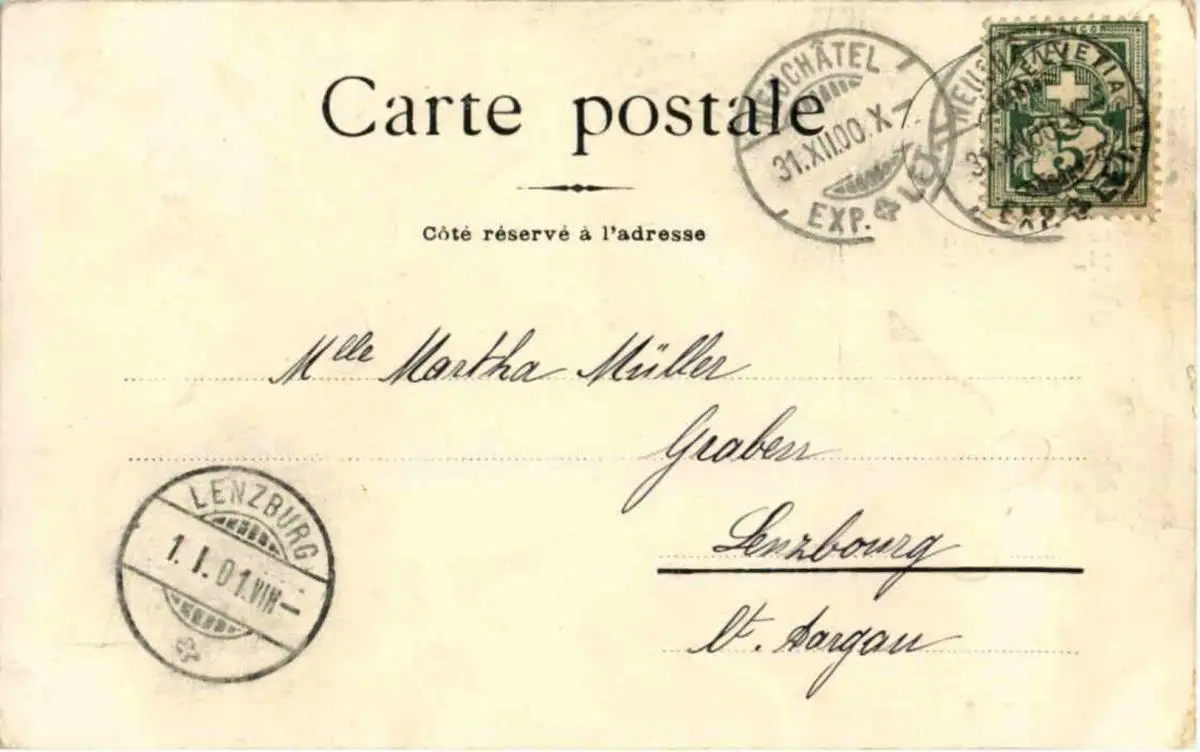 Carte postale
NEUCHÂTEL
31.XII.00.X-
EXP. & LET.
HELVETIA
5
31.XII.00.X-
EXP. & LET.
Côté réservé à l'adresse
Mlle Martha Müller
Graben
Lenzbourg
Ct. Aargau
LENZBURG
1.I.01.VIII-